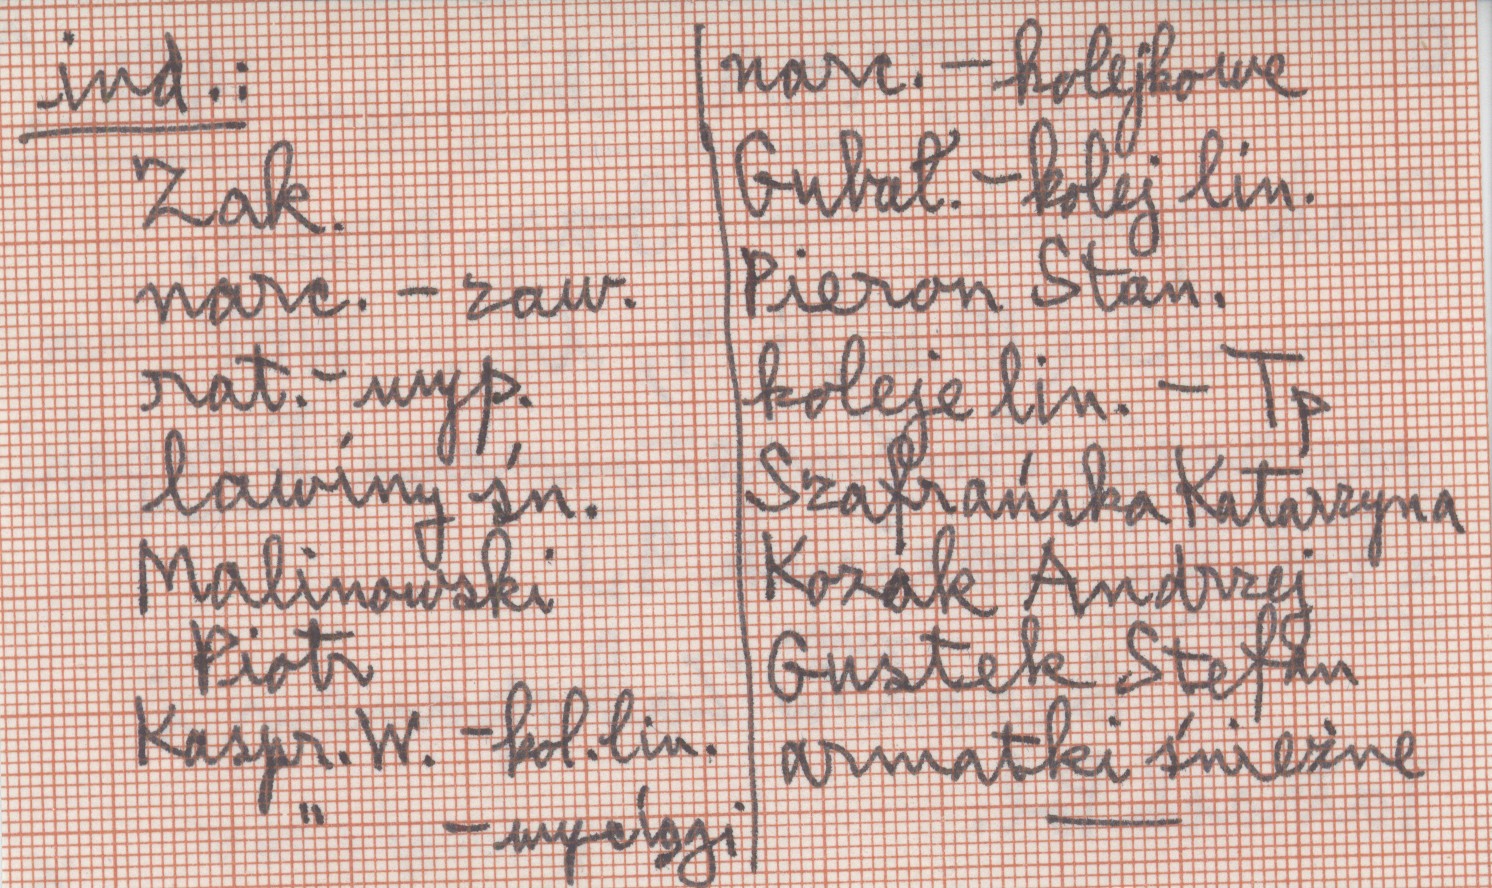 ind.:
Zak.
narc. - zaw.
rat. - wyp.
lawiny śn.
Malinowski
Piotr
Kaspr. W. - kol. lin.
" - wyciągi
narc. - kolejkowe
Gubał. - kolej lin.
Pieron Stan.
koleje lin. - Tp
Szafrańska Katarzyna
Kozak Andrzej
Gustek Stefan
armatki śnieżne